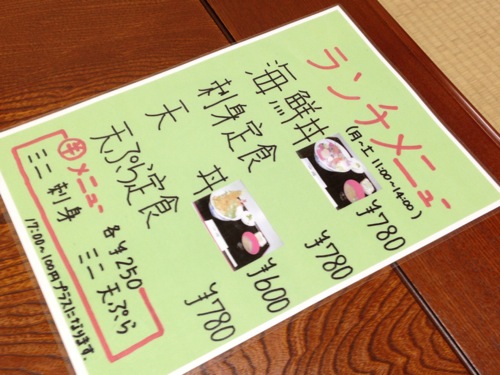 ランチメニュー
(月〜土 11:00~14:00)
海鮮丼 ¥780
刺身定食 ¥780
天丼 ¥600
天ぷら定食 ¥780
サメニュー 各¥250
ミニ刺身 ミニ天ぷら
17:00〜100円プラスになります。